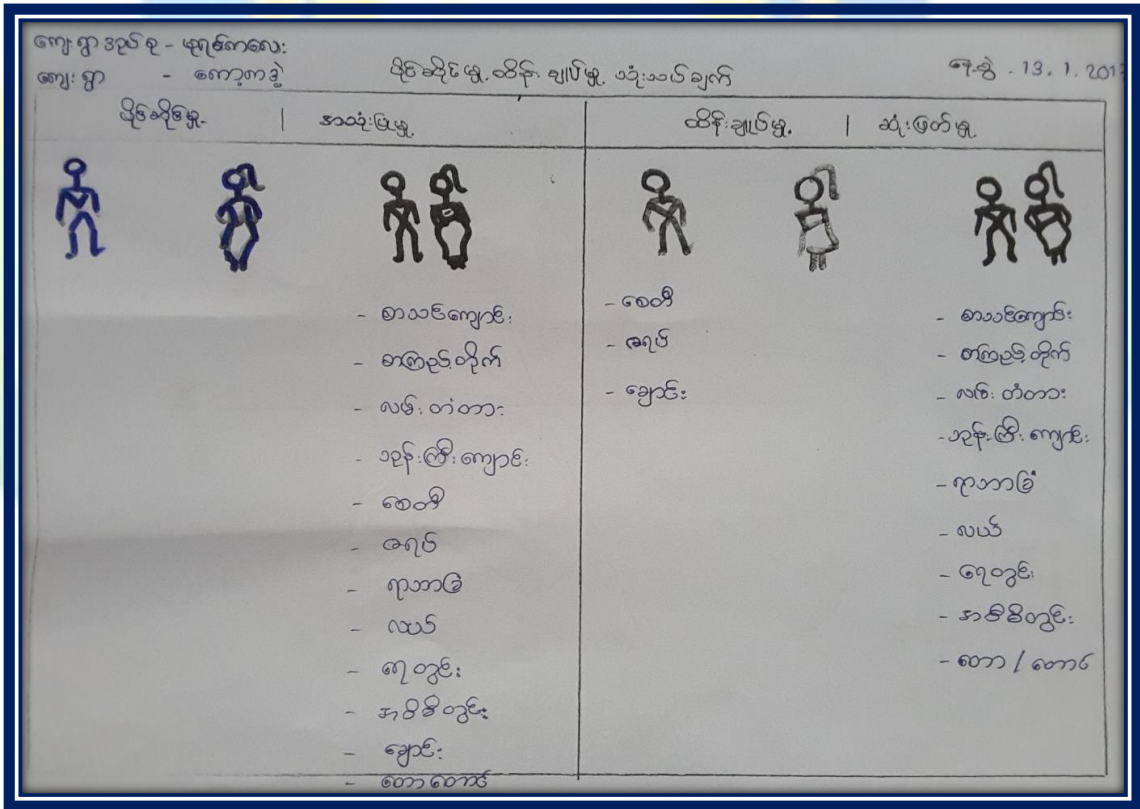 ကျေးရွာအုပ်စု - မုရစ်ကလေး
ကျေးရွာ - ကော့ကဒွဲ
ပိုင်ဆိုင်မှု, ထိန်းချုပ်မှု, သုံးသပ်ချက်
နေ့စွဲ . 13. 1. 2017
ပိုင်ဆိုင်မှု | အသုံးပြုမှု
ထိန်းချုပ်မှု | ဆုံးဖြတ်မှု
- စာသင်ကျောင်း
- စာကြည့်တိုက်
- လမ်း တံတား
- ဘုန်းကြီးကျောင်း
- စေတီ
- ဇရပ်
- ရာဘာခြံ
- လယ်
- ရေတွင်း
- အဝီစိတွင်း
- ချောင်း
- တောတောင်
- စေတီ
- ဇရပ်
- ချောင်း
- စာသင်ကျောင်း
- စာကြည့်တိုက်
- လမ်း တံတား
- ဘုန်းကြီးကျောင်း
- ရာဘာခြံ
- လယ်
- ရေတွင်း
- အဝီစိတွင်း
- တော / တောင်